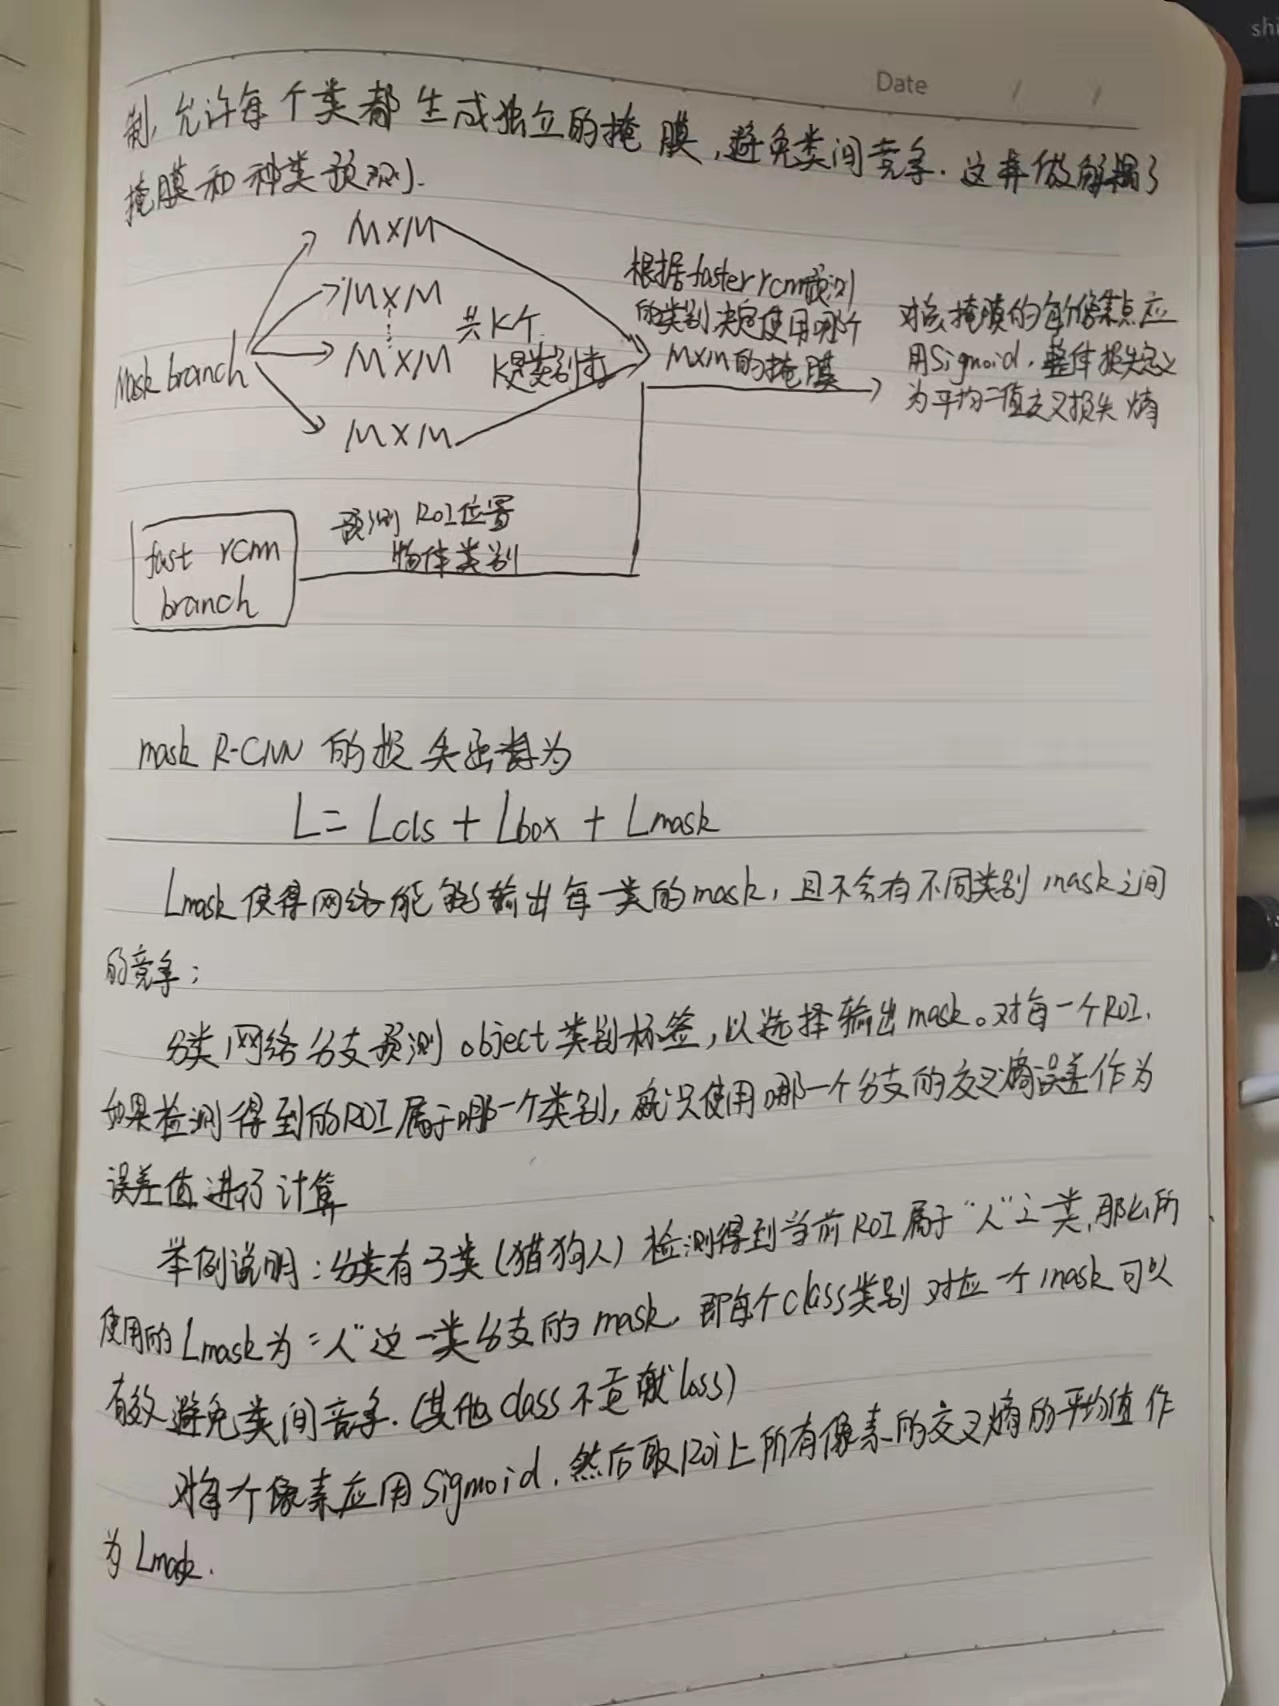 Date / /
制,允许每个类都生成独立的掩膜,避免类间竞争.这样做解耦了
掩膜和种类预测.
Mask branch
M×M
M×M
M×M
M×M
共K个
K是类别数
根据faster rcnn预测
的类别决定使用哪个
M×M的掩膜
对该掩膜的每个像素点应
用Sigmoid,整体损失定义
为平均二值交叉损失熵
fast rcnn
branch
预测ROI位置
物体类别
mask R-CNN 的损失函数为
L = Lcls + Lbox + Lmask
Lmask使得网络能够输出每一类的mask,且不会有不同类别mask之间
的竞争;
分类网络分支预测object类别标签,以选择输出mask。对每一个ROI,
如果检测得到的ROI属于哪一个类别,就只使用哪一个分支的交叉熵误差作为
误差值进行计算
举例说明:分类有3类(猫狗人)检测得到当前ROI属于"人"这一类,那么所
使用的Lmask为"人"这一类分支的mask,即每个class类别对应一个mask可以
有效避免类间竞争.(其他class不贡献loss)
对每个像素应用Sigmoid,然后取Roi上所有像素的交叉熵的平均值作
为Lmask.
shi